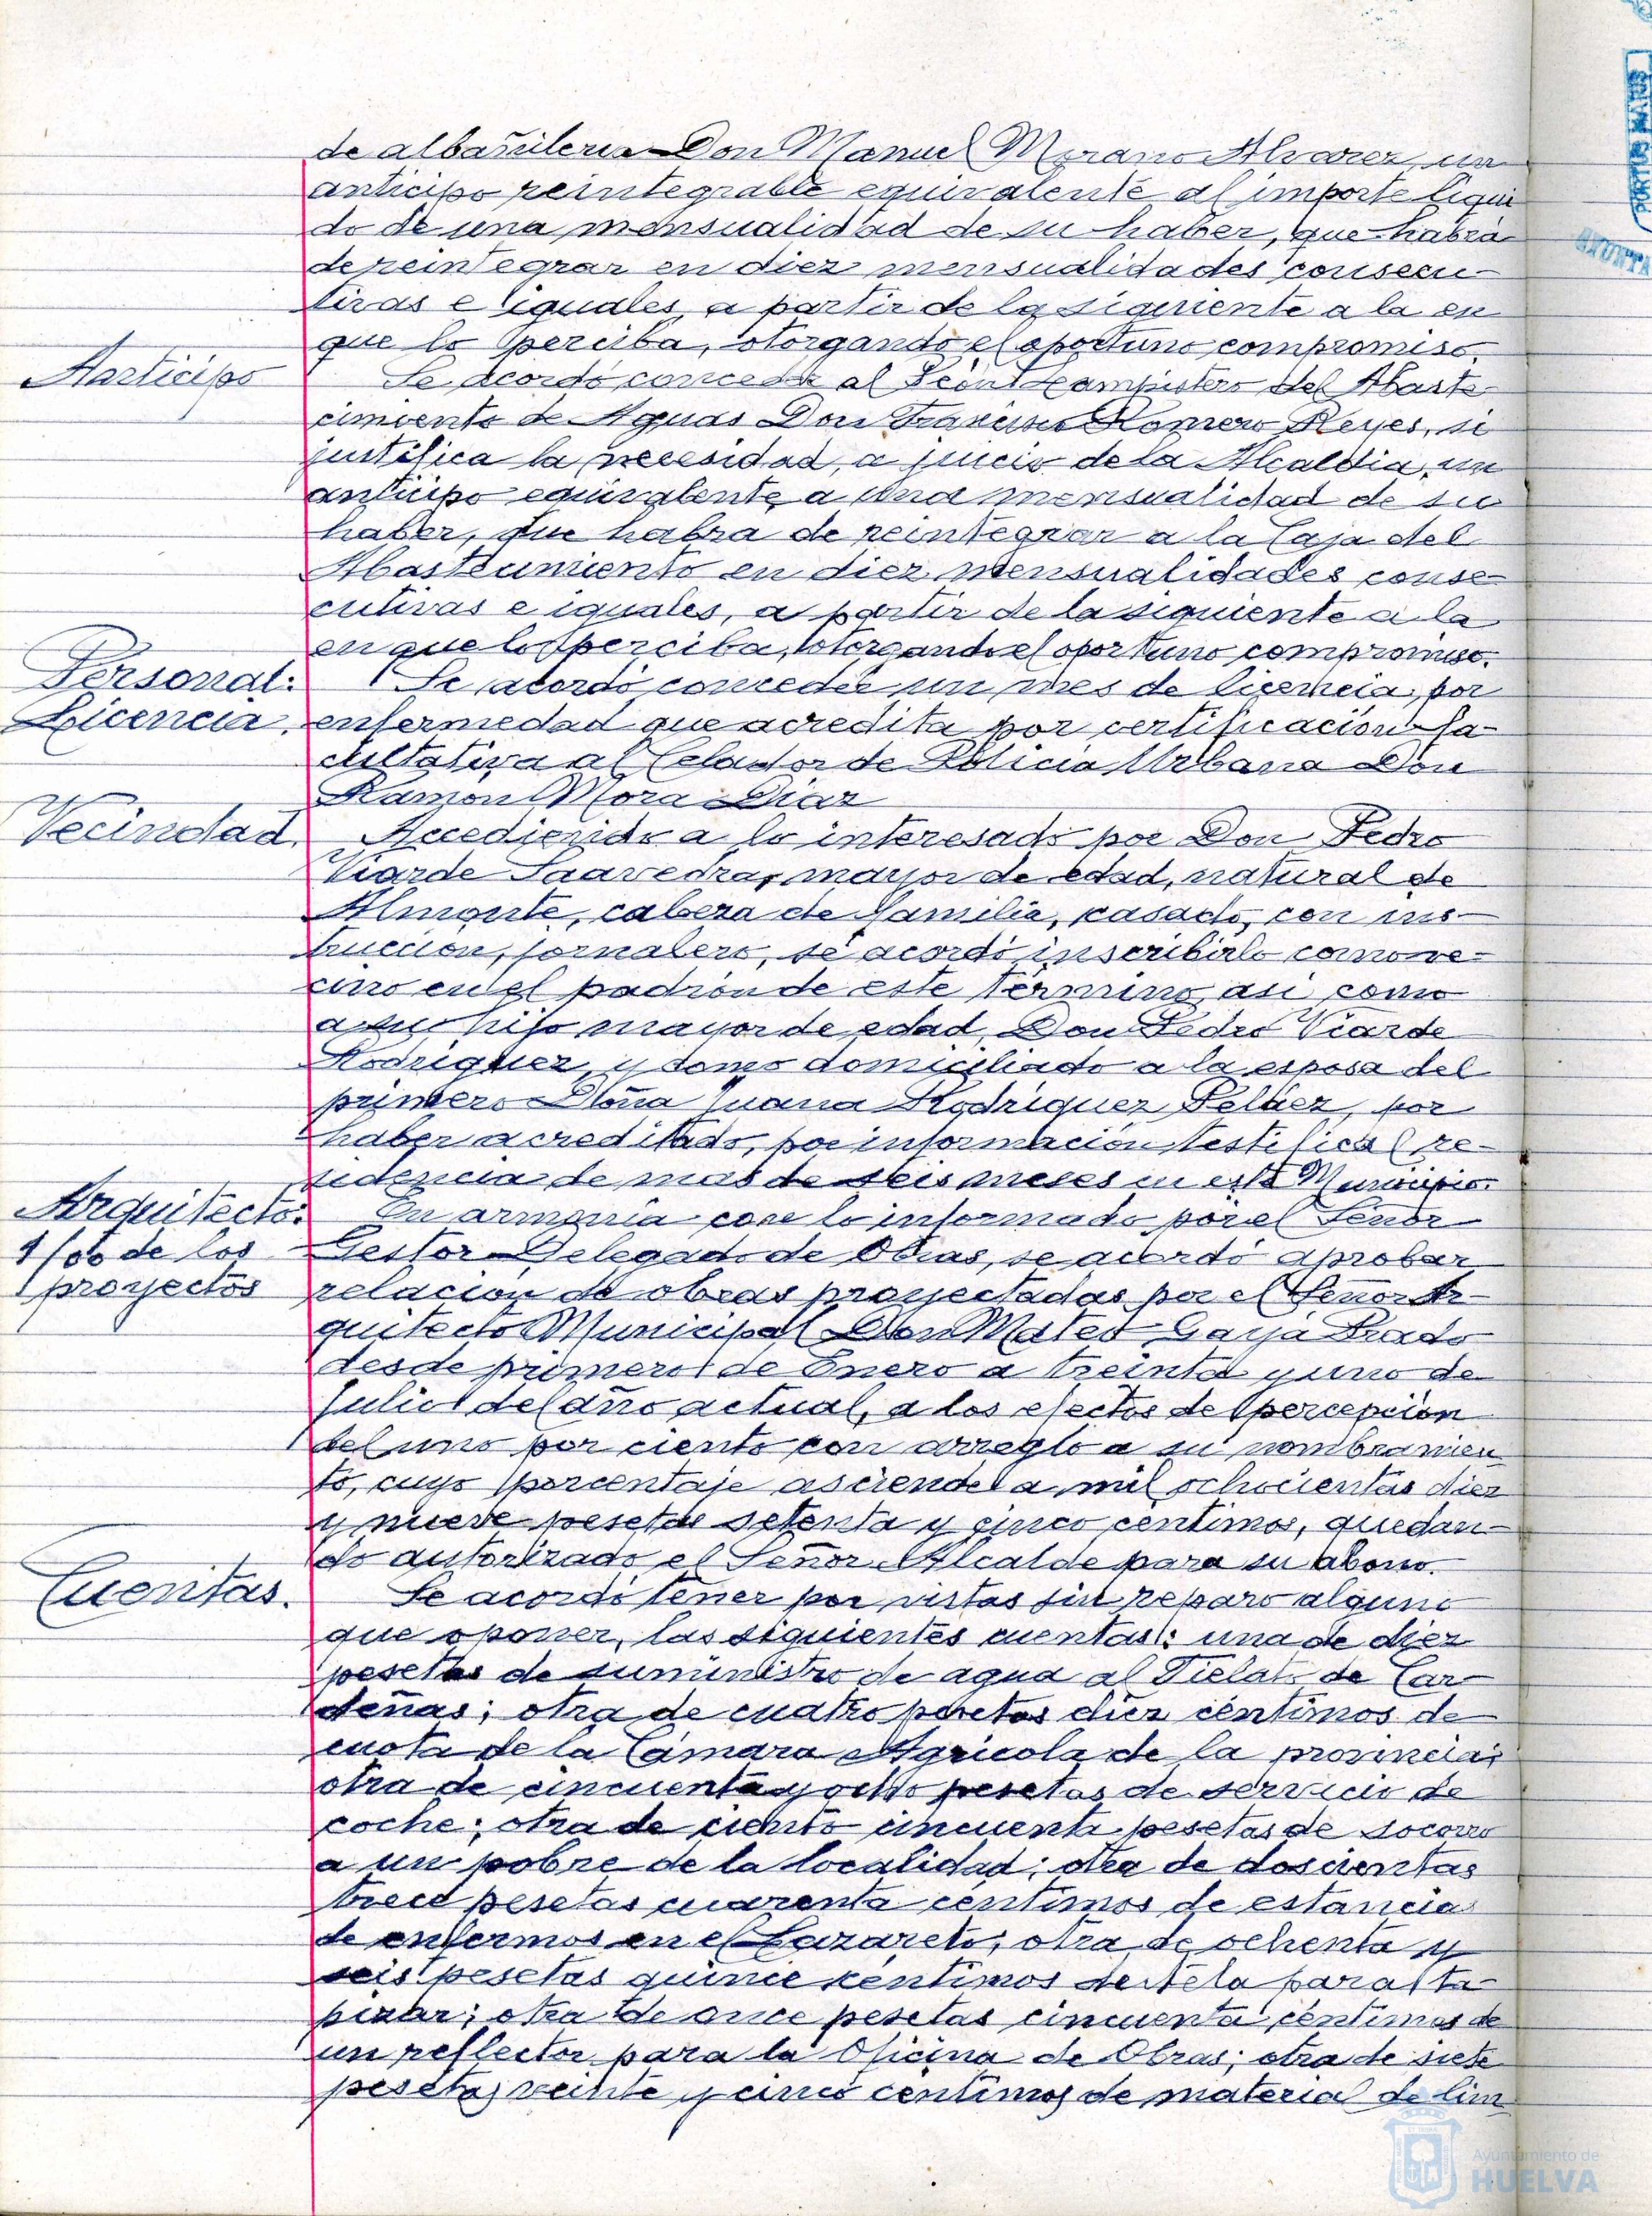 de albañileria Don Manuel Morano Alvarez, un
anticipo reintegrable equivalente al importe liqui
do de una mensualidad de su haber, que habrá
de reintegrar en diez mensualidades consecu-
tivas e iguales, a partir de la siguiente a la en
que lo perciba, otorgando el oportuno compromiso.
Anticipo
Se acordó conceder al Peón del Abaste-
cimiento de Aguas Don Francisco Romero Reyes, si
justifica la necesidad, a juicio de la Alcaldia, un
anticipo equivalente a una mensualidad de su
haber, que habra de reintegrar a la Caja del
Abastecimiento en diez mensualidades conse-
cutivas e iguales, a partir de la siguiente a la
en que lo perciba, otorgando el oportuno compromiso.
Personal:
Licencia.
Se acordó conceder un mes de licencia por
enfermedad que acredita por certificación fa-
cultativa al Celador de Policia Urbana Don
Ramon Mora Diaz
Vecindad.
Accediendo a lo interesado por Don Pedro
Viarde Saavedra, mayor de edad, natural de
Almonte, cabeza de familia, casado, con ins-
trucción, jornalero, se acordó inscribirlo como ve-
cino en el padrón de este término, asi como
a su hijo mayor de edad, Don Pedro Viarde
Rodriguez, y como domiciliado a la esposa del
primero Doña Juana Rodriguez Peláez, por
haber acreditado, por información testifical re-
sidencia de mas de seis meses en este Municipio.
Arquitecto:
1/00 de los
proyectos
En armonia con lo informado por el Señor
Gestor Delegado de Obras, se acordó aprobar
relación de obras proyectadas por el Señor Ar-
quitecto Municipal Don Mateo Gayá Prado
desde primero de Enero a treinta y uno de
Julio del año actual, a los efectos de percepción
del uno por ciento con arreglo a su nombramien
to, cuyo porcentaje asciende a mil ochocientas diez
y nueve pesetas setenta y cinco centimos, quedan-
do autorizado el Señor Alcalde para su abono.
Cuentas.
Se acordó tener por vistas sin reparo alguno
que oponer, las siguientes cuentas: una de diez
pesetas de suministro de agua al Tielat de Car-
deñas; otra de cuatro pesetas diez céntimos de
cuota de la Cámara Agricola de la provincia;
otra de cincuenta y ocho pesetas de servicio de
coche; otra de ciento cincuenta pesetas de socorro
a un pobre de la localidad; otra de doscientas
trece pesetas cuarenta céntimos de estancias
de enfermos en el Lazareto; otra de ochenta y
seis pesetas quince céntimos de tela para ta-
pizar; otra de once pesetas cincuenta céntimos de
un reflector para la Oficina de Obras; otra de siete
pesetas veinte y cinco céntimos de material de lim
Ayuntamiento de
HUELVA